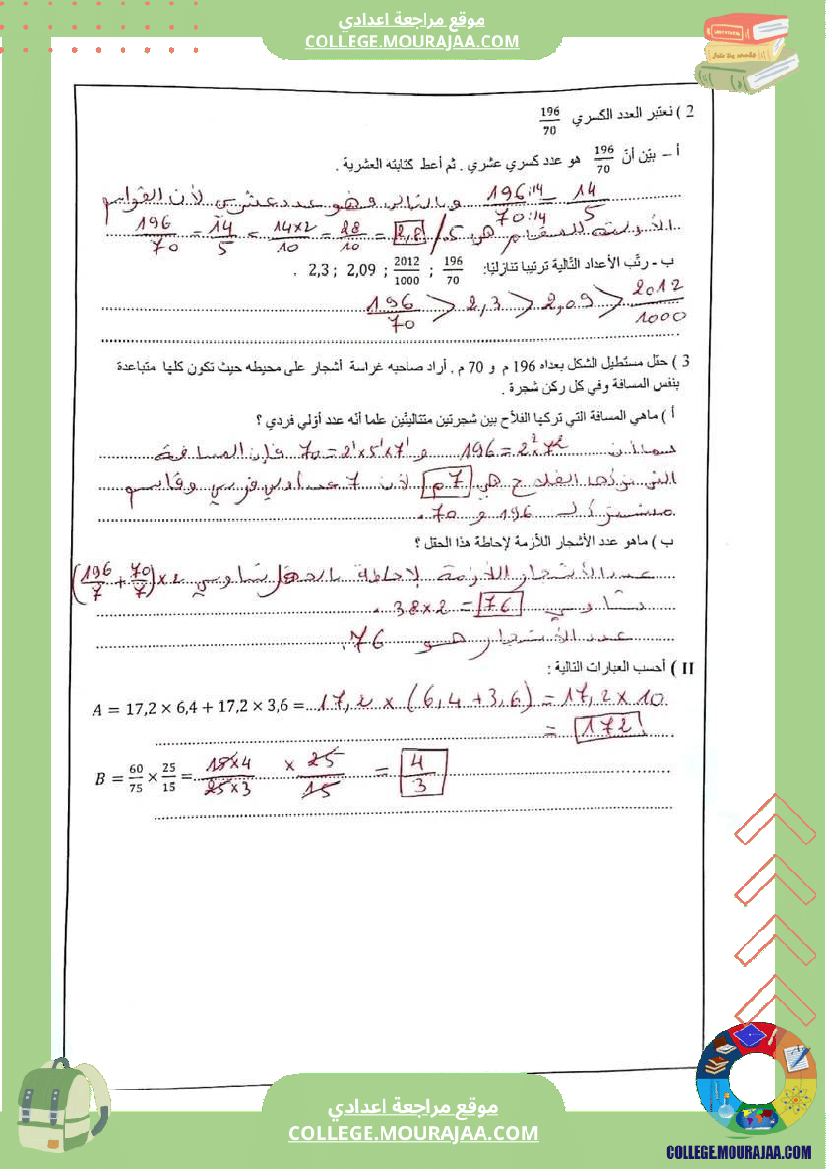 موقع مراجعة اعدادي
COLLEGE.MOURAJAA.COM
2 ) نعتبر العدد الكسري 196/70
أ – بيّن أنّ 196/70 هو عدد كسري عشري . ثم أعط كتابته العشرية .
196:14/70:14 = 14/5 وبالتالي فهو عدد عشري لأن القواسم
الأولية للمقام هي 5. / 196/70 = 14/5 = 14×2/10 = 28/10 = 2,8
ب - رتّب الأعداد التّالية ترتيبا تنازليّا: 196/70 ; 2012/1000 ; 2,09 ; 2,3 .
196/70 > 2,3 > 2,09 > 2012/1000
3 ) حقل مستطيل الشكل بعداه 196 م و 70 م . أراد صاحبه غراسة أشجار على محيطه حيث تكون كلها متباعدة
بنفس المسافة وفي كل ركن شجرة .
أ ) ماهي المسافة التي تركها الفلاّح بين شجرتين متتاليتين علما أنّه عدد أوّلي فردي ؟
بما أن 196 = 2²×7² و 70 = 2¹×5¹×7¹ فإن المسافة
التي تركها الفلاح هي 7م لأن 7 عدد أولي فردي وقاسم
مشترك لـ 196 و 70.
ب ) ماهو عدد الأشجار اللاّزمة لإحاطة هذا الحقل ؟
عدد الأشجار اللازمة لإحاطة بالحقل يساوي (196/7 + 70/7)×2
يساوي 38×2 = 76 .
عدد الأشجار هو 76.
II ) أحسب العبارات التالية :
A = 17,2 × 6,4 + 17,2 × 3,6 = 17,2 × (6,4+3,6) = 17,2×10
= 172
B = 60/75 × 25/15 = 15×4/25×3 × 25/15 = 4/3
موقع مراجعة اعدادي
COLLEGE.MOURAJAA.COM
COLLEGE.MOURAJAA.COM